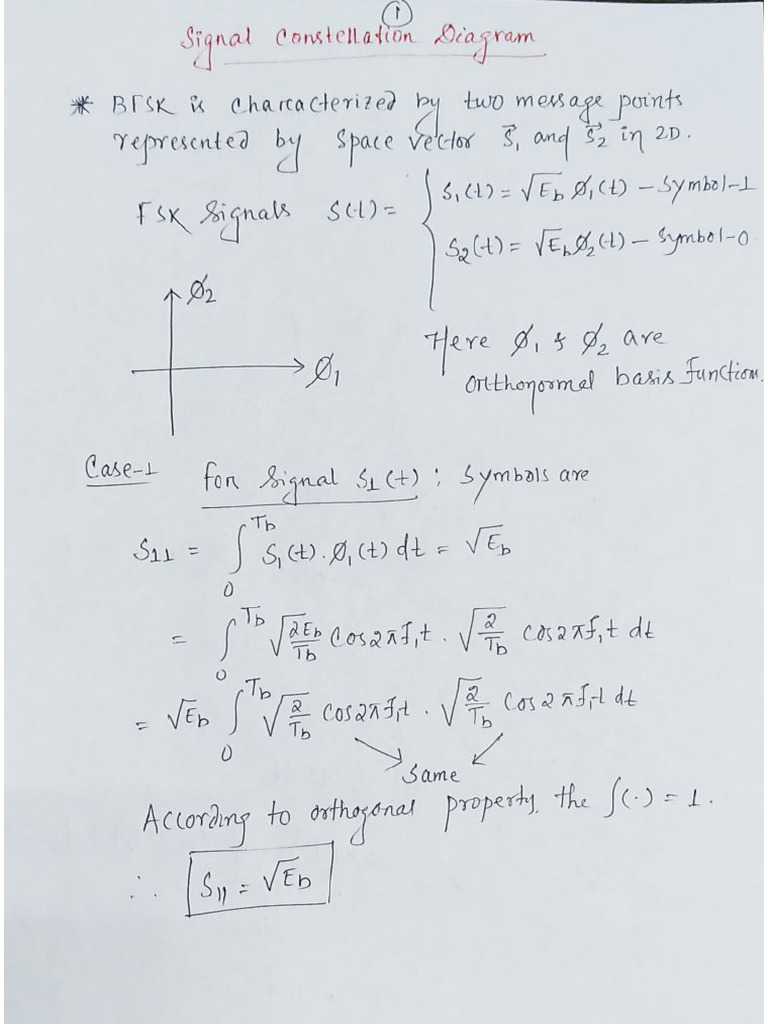 1
Signal Constellation Diagram
* BFSK is characterized by two message points
represented by space vector s⃗₁ and s⃗₂ in 2D.
FSK Signals S(t) = { S₁(t) = √E_b Ø₁(t) – Symbol-1
S₂(t) = √E_b Ø₂(t) – Symbol-0
Ø₂
Ø₁
Here Ø₁ & Ø₂ are
orthonormal basis function.
Case-1 for Signal S₁(t) ; Symbols are
S₁₁ = ∫₀^{T_b} S₁(t) . Ø₁(t) dt = √E_b
= ∫₀^{T_b} √(2E_b/T_b) Cos2πf₁t . √(2/T_b) Cos2πf₁t dt
= √E_b ∫₀^{T_b} √(2/T_b) Cos2πf₁t . √(2/T_b) Cos2πf₁t dt
Same
According to orthogonal property, the ∫(·) = 1.
∴ S₁₁ = √E_b